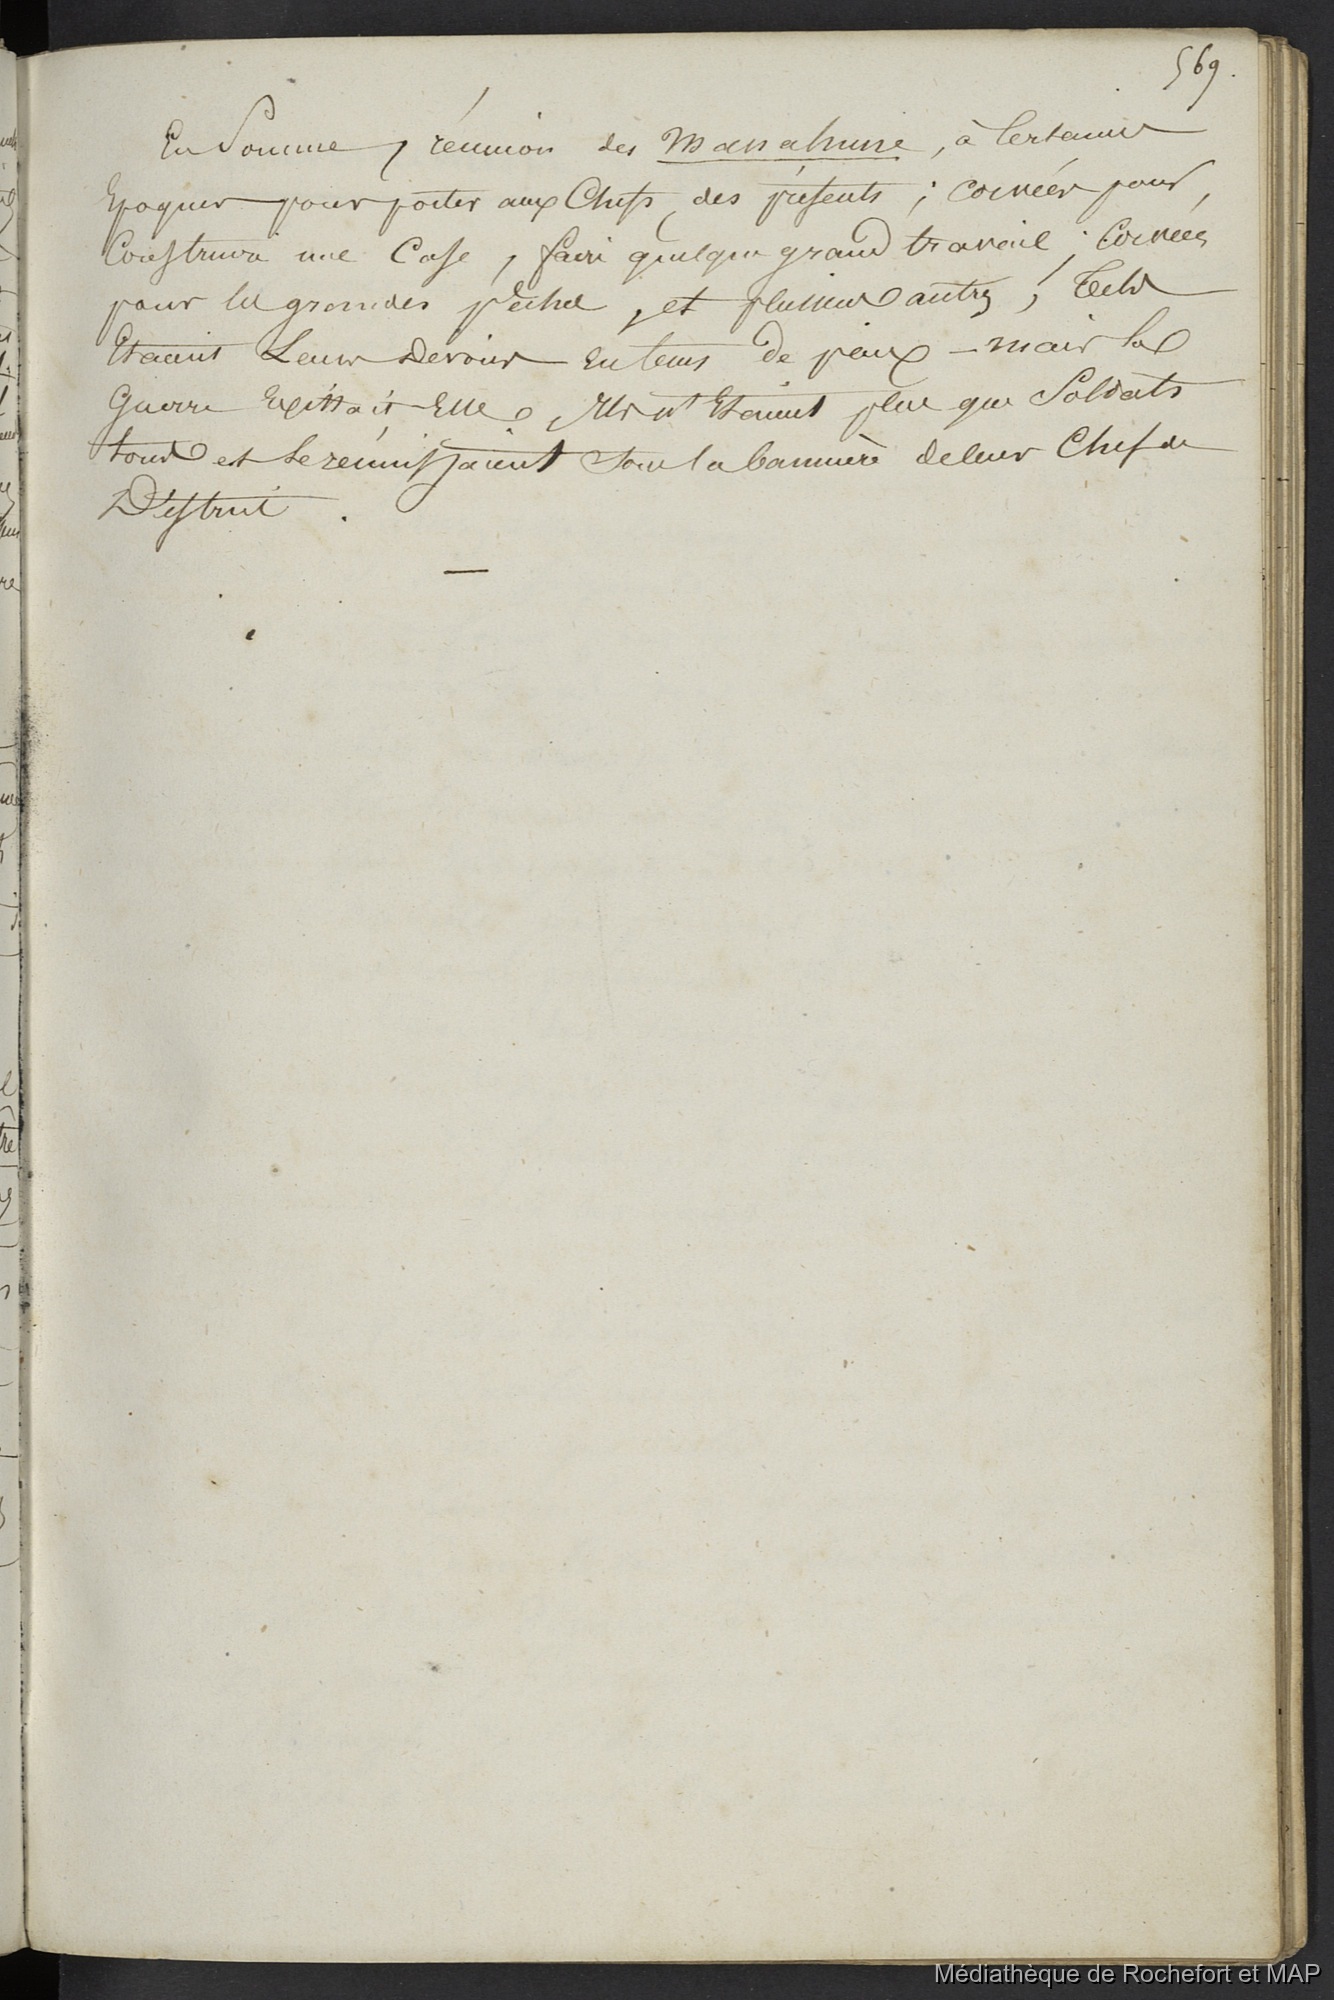 569.
En Somme, réunion des Manahune, à Certaines
Epoques pour porter aux Chefs des présents ; corvées pour
Construire une Case, faire quelque grand travail ; Corvées
pour les grandes pêches, et plusieurs autres ; Tels
Etaient Leurs Devoirs en tems de paix – mais la
Guerre Existait-Elle, Ils n' Etaient plus que Soldats
tous et se réunissaient sous la bannière de leur Chef de
District.
Médiathèque de Rochefort et MAP